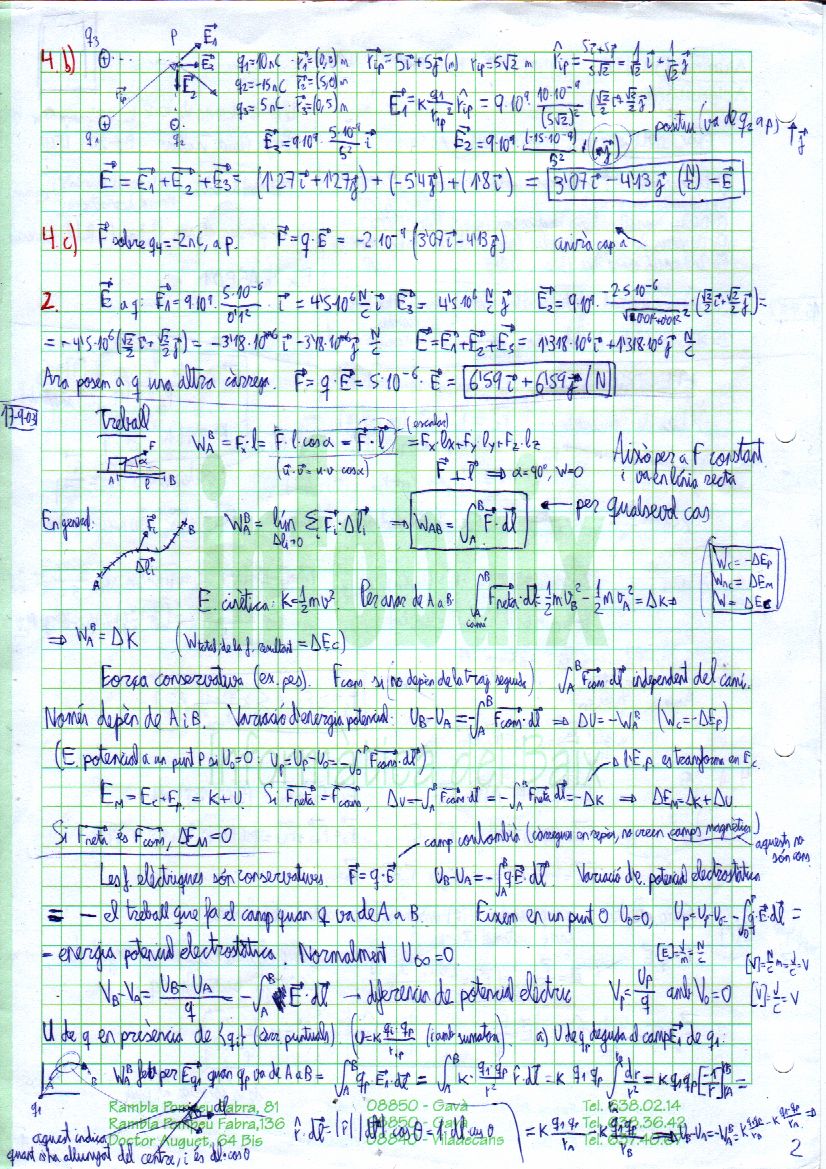 4.b) q₃ P E⃗₁ E⃗₃ E⃗₂ r⃗₁ₚ q₁ q₂
q₁=10nC r⃗₁=(0,0)m r⃗₁ₚ=5i⃗+5j⃗(m) r₁ₚ=5√2 m r̂₁ₚ=(5i⃗+5j⃗)/(5√2)=1/√2 i⃗+1/√2 j⃗
q₂=-15nC r⃗₂=(5,0)m
q₃=5nC r⃗₃=(0,5)m E⃗₁=K q₁/r₁ₚ² r̂₁ₚ = 9·10⁹ · 10·10⁻⁹/(5√2)² (√2/2 i⃗+√2/2 j⃗)
E⃗₃=9·10⁹ · 5·10⁻⁹/5² i⃗ E⃗₂=9·10⁹ (-15·10⁻⁹)/5² · (j⃗) positiu (va de q₂ a p) ↑j⃗
E⃗=E⃗₁+E⃗₂+E⃗₃= (1'27i⃗+1'27j⃗)+(-5'4j⃗)+(1'8i⃗) = 3'07i⃗-4'13j⃗ (N/C) =E⃗
4.c) F⃗ sobre q₄=-2nC, a p. F⃗=q·E⃗ = -2·10⁻⁹·(3'07i⃗-4'13j⃗) aniria cap a
2. E⃗ a q: E⃗₁=9·10⁹· 5·10⁻⁶/0'1² · i⃗ = 4'5·10⁶ N/C i⃗ E⃗₃= 4'5·10⁶ N/C j⃗ E⃗₂=9·10⁹· -2·5·10⁻⁶/ ·(√2/2 i⃗+√2/2 j⃗)=
= -4'5·10⁶(√2/2 i⃗+√2/2 j⃗) = -3'18·10⁶ i⃗ -3'18·10⁶ j⃗ N/C E⃗=E⃗₁+E⃗₂+E⃗₃ = 1'318·10⁶ i⃗+1'318·10⁶ j⃗ N/C
Ara posem a q una altra càrrega. F⃗=q·E⃗=5·10⁻⁶·E⃗ = 6'59i⃗+6'59j⃗ (N)
17-9-03
Treball
W_A^B=Fₓ·l=F·l·cosα=F⃗·l⃗ (escalar) =Fₓ·lₓ+F_y·l_y+F_z·l_z
(u⃗·v⃗=u·v·cosα) F⃗⊥l⃗ ⇒ α=90º, W=0
Això per a F constant
i va en línia recta
F α A l B
En general: A F⃗ᵢ Δl⃗ᵢ B
W_A^B= lim Δlᵢ→0 Σ F⃗ᵢ·Δl⃗ᵢ ⇒ W_AB=∫_A^B F⃗·dl⃗ ← per qualsevol cas
W_c=-ΔE_p
W_nc=ΔE_m
W=ΔE_c
E. cinètica: K=½mv². Per anar de A a B: ∫_A^B camí F⃗neta·dl⃗=½mv_B²-½mv_A²=ΔK⇒
⇒ W_A^B=ΔK (Wtotal, de la f. resultant=ΔE_c)
Força conservativa (ex. pes). Fcons si (no depèn de la traj. seguida) ∫_A^B F⃗cons dl⃗ independent del camí.
Només depèn de A i B. Variació d'energia potencial: U_B-U_A=-∫_A^B F⃗cons·dl⃗ ⇒ ΔU=-W_A^B (W_c=-ΔE_p)
(E. potencial a un punt P si U₀=0: U_p=U_p-U₀=-∫₀^P F⃗cons·dl⃗)
l'E.p. es transforma en E_c.
E_M=E_c+E_p = K+U. Si F⃗neta=F⃗cons, ΔU=-∫_A^B F⃗cons·dl⃗=-∫_A^B F⃗neta·dl⃗=-ΔK ⇒ ΔE_M=ΔK+ΔU
Si F⃗neta és F⃗cons, ΔE_M=0
camp coulombià (càrregues en repòs, no creen camps magnètics) aquests no són cons.
Les f. elèctriques són conservatives. F⃗=q·E⃗ U_B-U_A=-∫_A^B qE⃗·dl⃗. Variació de potencial electrostàtica
= - el treball que fa el camp quan q va de A a B. Eixem en un punt O U₀=0, U_p=U_p-U₀=-∫₀^P qE⃗·dl⃗ =
= energia potencial electrostàtica. Normalment U∞=0. [E]=V/m=N/C
[V]=N/C m=J/C=V
V_B-V_A=(U_B-U_A)/q=-∫_A^B E⃗·dl⃗ → diferència de potencial elèctric V_p=U_p/q amb V₀=0 [V]=J/C=V
U de q en presència de {qᵢ} (càrr. puntuals). (U=K qᵢ·q_p/rᵢₚ (i amb sumatori). a) U de q_p deguda al camp E⃗₁ de q₁:
W_A^B fet per E⃗q₁ quan q_p va de A a B= ∫_A^B q_p·E⃗₁·dl⃗ = ∫_A^B K·q₁q_p/r² r̂·dl⃗ = K q₁q_p∫dr/r² = K q₁q_p[-1/r]_A^B=
A B q₁
Rambla Pompeu Fabra, 81 08850 - Gavà Tel. 638.02.14
Rambla Pompeu Fabra, 136 08850 - Gavà
Doctor Auguet, 64 Bis 08840 - Viladecans
r̂·dl⃗=|r̂||dl⃗|cosθ=1·dl cosθ = K q₁q_p/r_A - K q₁q_p/r_B ⇒
aquest indica
quant s'ha allunyat del centre, i és dl·cosθ
2